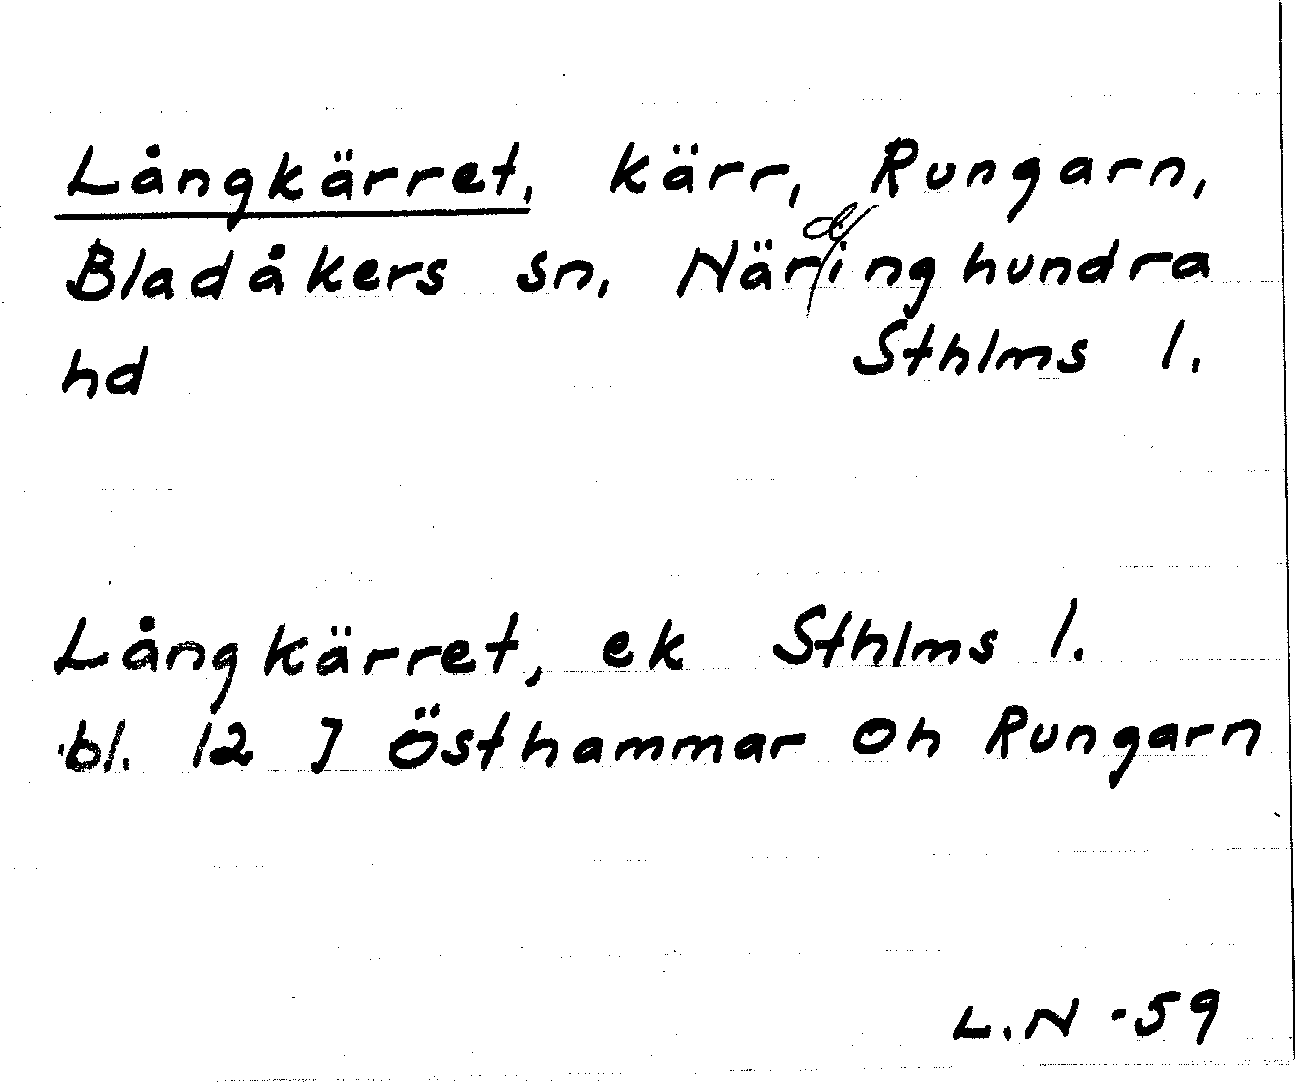 Långkärret, kärr, Rungarn,
Bladåkers sn, Närdinghundra
hd Sthlms l.
Långkärret, ek Sthlms l.
bl. 12 J Östhammar Oh Rungarn
L.N -59